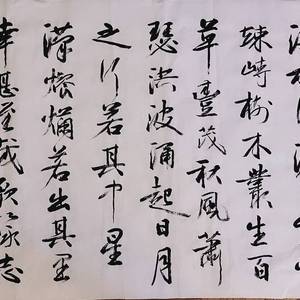 竦峙樹木叢生百
草豐茂秋風蕭
瑟洪波涌起日月
之行若其中星
漢燦爛若出其里
幸甚至哉歌以詠志